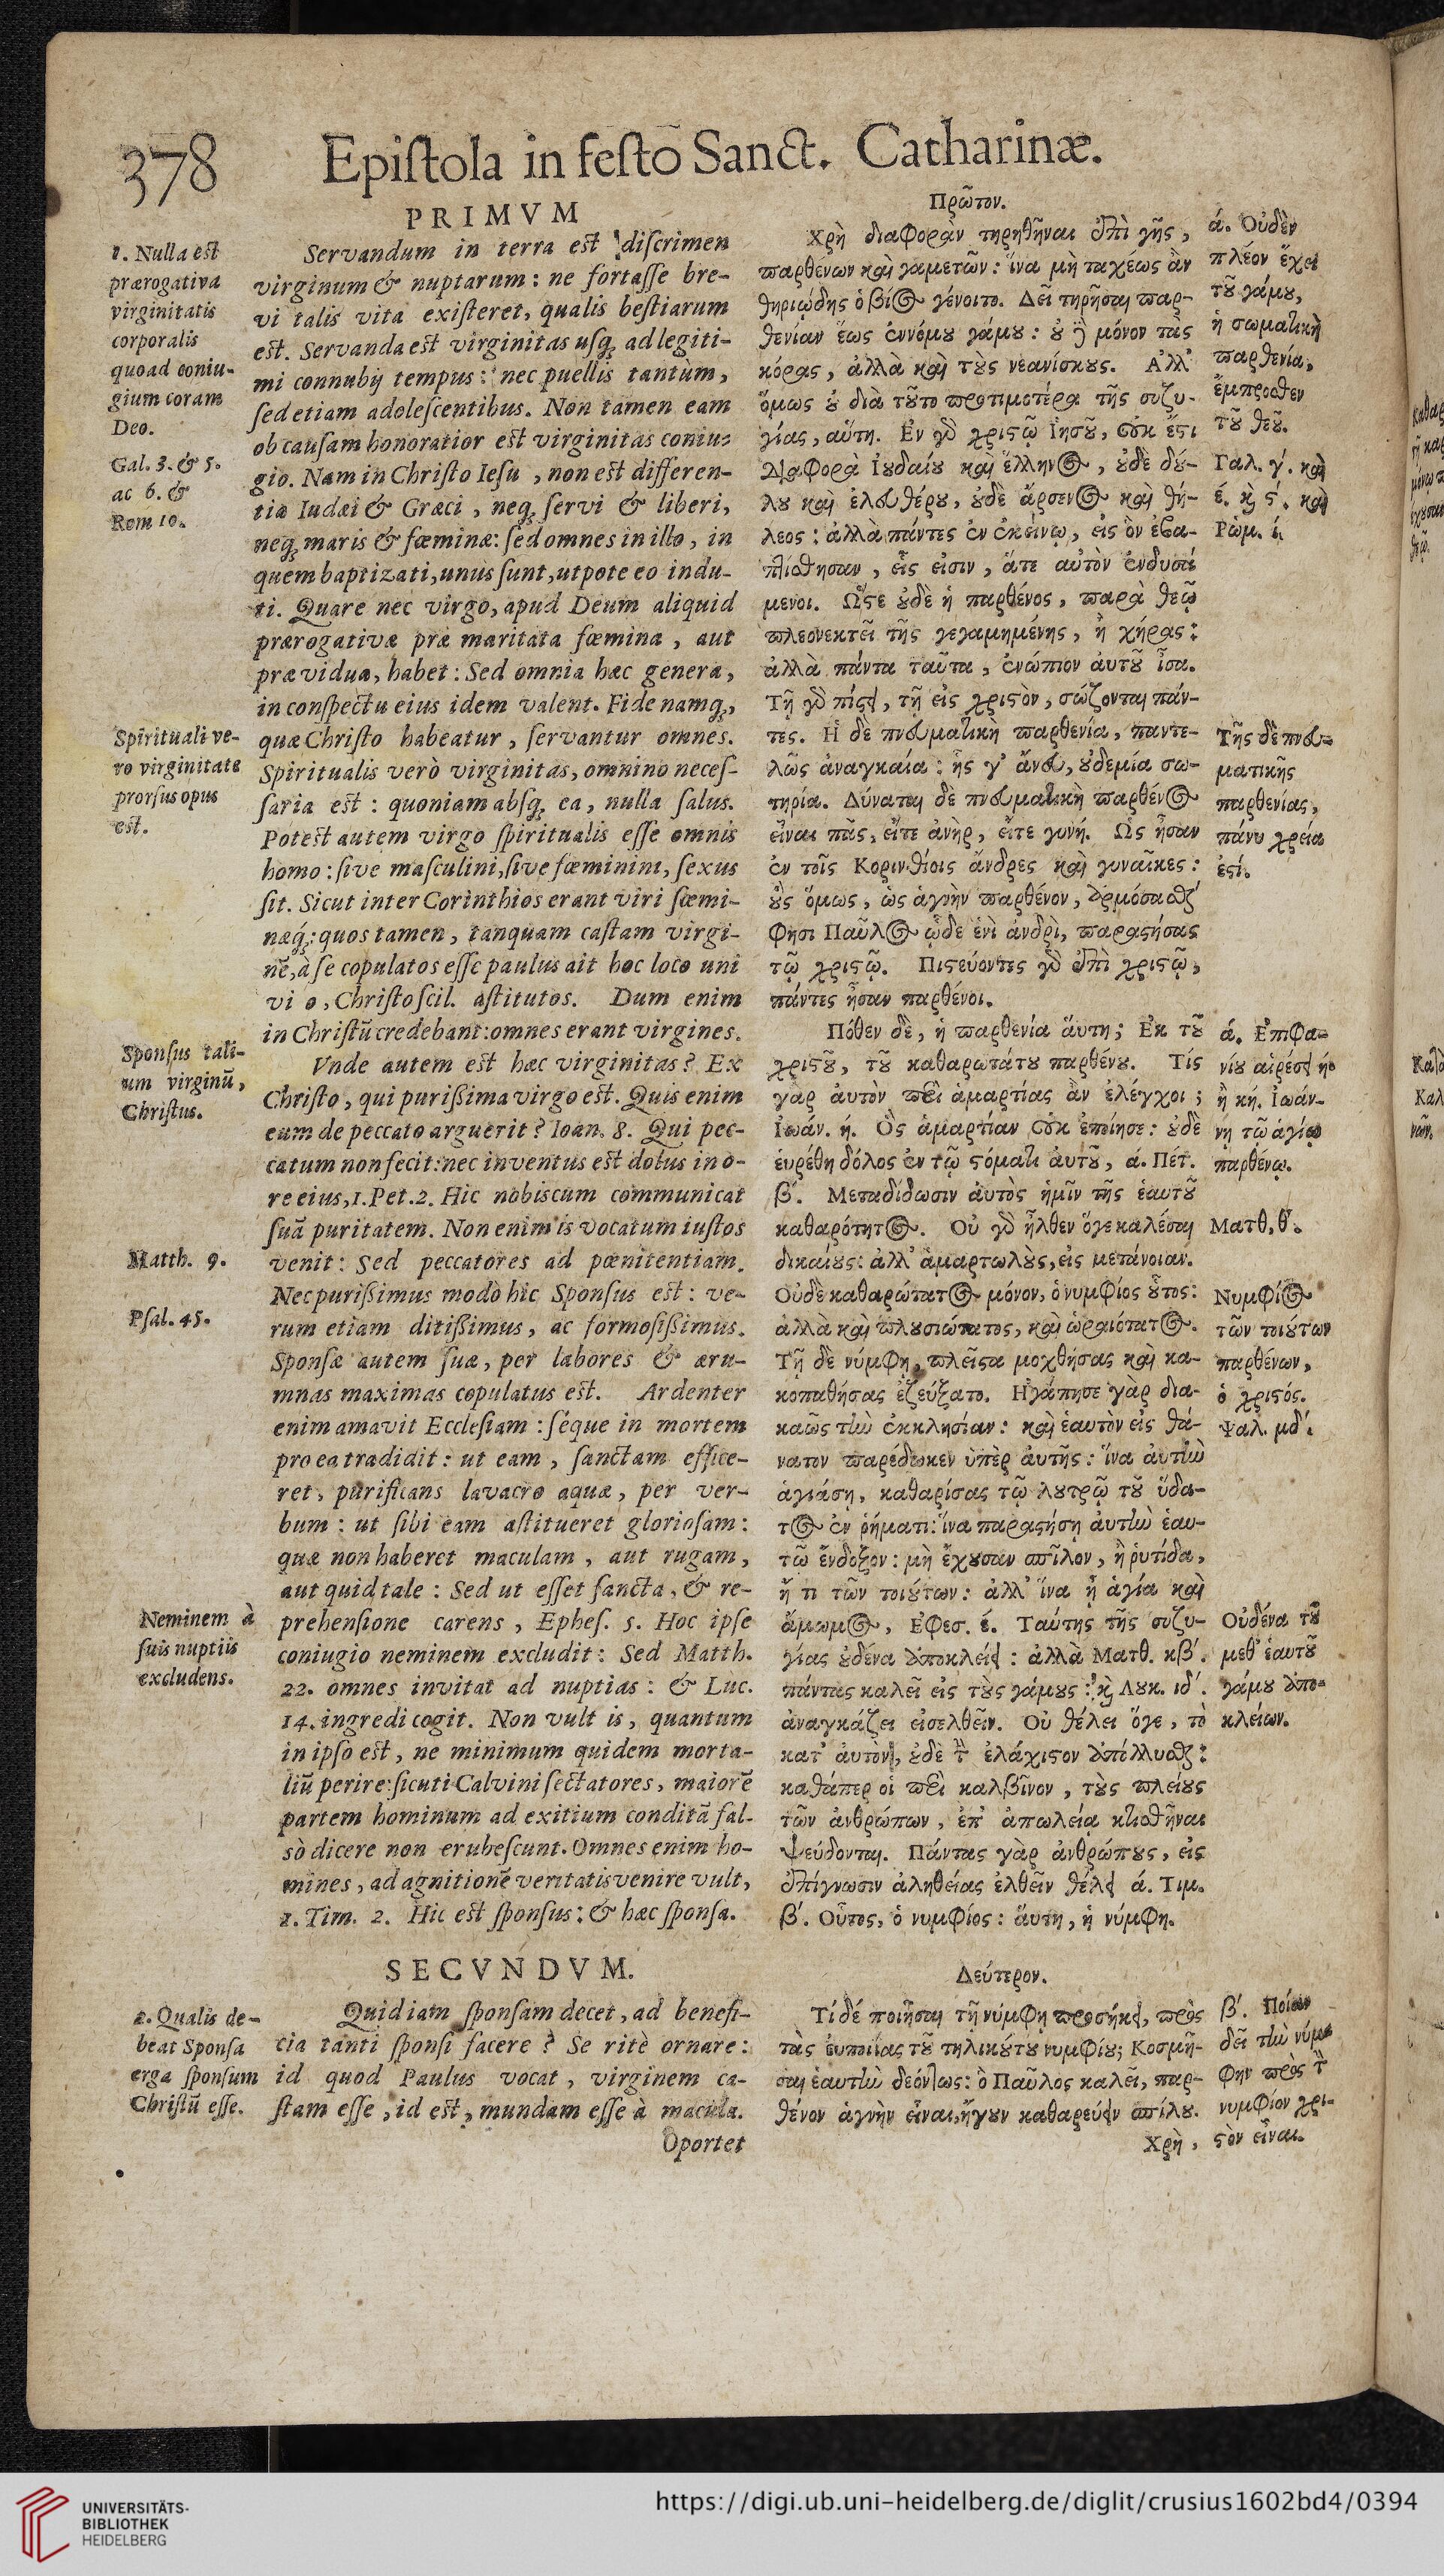 378 Epiſtola in feſto Sanct. Catharinæ.
PRIMVM
1. Nulla eſt
prærogativa
virginitatis
corporalis
quoad coniu-
gium coram
Deo.
Gal. 3. & 5.
ac 6. &
Rom 10.
Spirituali ve-
ro virginitate
prorſus opus
eſt.
Sponſus tali-
um virginū,
Chriſtus.
Matth. 9.
Pſal. 45.
Neminem à
ſuis nuptiis
excludens.
2. Qualis de-
beat Sponſa
erga ſponſum
Chriſtū eſſe.
Servandum in terra eſt diſcrimen
virginum & nuptarum: ne fortaſſe bre-
vi talis vita exiſteret, qualis beſtiarum
eſt. Servanda eſt virginitas uſq; ad legiti-
mi connubij tempus: nec puellis tantùm,
ſed etiam adoleſcentibus. Non tamen eam
ob cauſam honoratior eſt virginitas coniu-
gio. Nam in Chriſto Ieſu, non eſt differen-
tia Iudæi & Græci, neq; ſervi & liberi,
neq; maris & fœminæ: ſed omnes in illo, in
quem baptizati, unus ſunt, utpote eo indu-
ti. Quare nec virgo, apud Deum aliquid
prærogativæ præ maritata fœmina, aut
præ vidua, habet: Sed omnia hæc genera,
in conſpectu eius idem valent. Fide namq;,
quæ Chriſto habeatur, ſervantur omnes.
Spiritualis verò virginitas, omnino neceſ-
ſaria eſt: quoniam abſq; ea, nulla ſalus.
Poteſt autem virgo ſpiritualis eſſe omnis
homo: ſive maſculini, ſive fœminini, ſexus
ſit. Sicut inter Corinthios erant viri fœmi-
næq́;: quos tamen, tanquam caſtam virgi-
nē, à ſe copulatos eſſe paulus ait hoc loco uni
vi o, Chriſto ſcil. aſtitutos. Dum enim
in Chriſtū credebant: omnes erant virgines.
Vnde autem eſt hæc virginitas? Ex
Chriſto, qui purißima virgo eſt. Quis enim
eum de peccato arguerit? Ioan. 8. Qui pec-
catum non fecit: nec inventus eſt dolus in o-
re eius, 1. Pet. 2. Hic nobiscum communicat
ſuā puritatem. Non enim is vocatum iuſtos
venit: Sed peccatores ad pœnitentiam.
Nec purißimus modò hic Sponſus eſt: ve-
rum etiam ditißimus, ac formoſißimus.
Sponſæ autem ſuæ, per labores & æru-
mnas maximas copulatus eſt. Ardenter
enim amavit Eccleſiam: ſéque in mortem
pro ea tradidit: ut eam, ſanctam effice-
ret, purificans lavacro aquæ, per ver-
bum: ut ſibi eam aſtitueret glorioſam:
quæ non haberet maculam, aut rugam,
aut quid tale: Sed ut eſſet ſancta, & re-
prehenſione carens, Epheſ. 5. Hoc ipſe
coniugio neminem excludit: Sed Matth.
22. omnes invitat ad nuptias: & Luc.
14. ingredi cogit. Non vult is, quantum
in ipſo eſt, ne minimum quidem morta-
liū perire: ſicuti Calvini ſectatores, maiorē
partem hominum ad exitium conditā fal-
sò dicere non erubeſcunt. Omnes enim ho-
mines, ad agnitionē veritatis venire vult,
1. Tim. 2. Hic eſt ſponſus: & hæc ſponſa.
SECVNDVM.
Quid iam ſponſam decet, ad benefi-
cia tanti ſponſi facere? Se ritè ornare:
id quod Paulus vocat, virginem ca-
ſtam eſſe, id eſt, mundam eſſe à macula.
Oportet
Πρῶτον.
Χρὴ διαφορὰν τηρηθῆναι ἐπὶ γῆς,
παρθένων καὶ γαμετῶν: ἵνα μὴ ταχέως ἂν
θηριώδης ὁ βίος γένοιτο. Δεῖ τηρῆσαι παρ-
θενίαν ἕως ἐννόμου γάμου: οὐ γὰρ μόνον τὰς
κόρας, ἀλλὰ καὶ τοὺς νεανίσκους. Ἀλλ'
ὅμως οὐ διὰ τοῦτο προτιμοτέρα τῆς συζυ-
γίας, αὕτη. Ἐν γὰρ χριστῷ Ἰησοῦ, οὐκ ἔστι
διαφορὰ Ἰουδαίου καὶ ἕλληνος, οὐδὲ δού-
λου καὶ ἐλευθέρου, οὐδὲ ἄρσενος καὶ θή-
λεος: ἀλλὰ πάντες ἐν ἐκείνῳ, εἰς ὃν ἐβα-
πτίσθησαν, εἷς εἰσιν, ἅτε αὐτὸν ἐνδυσά-
μενοι. Ὥστε οὐδὲ ἡ παρθένος, παρὰ θεῷ
πλεονεκτεῖ τῆς γεγαμημένης, ἢ χήρας:
ἀλλὰ πάντα ταῦτα, ἐνώπιον αὐτοῦ ἶσα.
Τῇ γὰρ πίστει, τῇ εἰς χριστὸν, σώζονται πάν-
τες. Ἡ δὲ πνευματικὴ παρθενία, παντε-
λῶς ἀναγκαία: ἧς γ' ἄνευ, οὐδεμία σω-
τηρία. Δύναται δὲ πνευματικὴ παρθένος
εἶναι πᾶς, εἴτε ἀνὴρ, εἴτε γυνή. Ὡς ἦσαν
ἐν τοῖς Κορινθίοις ἄνδρες καὶ γυναῖκες:
οὓς ὅμως, ὡς ἁγνὴν παρθένον, ἁρμόσασθαί
φησι Παῦλος ὧδε ἑνὶ ἀνδρὶ, παραστήσας
τῷ χριστῷ. Πιστεύοντες γὰρ ἐπὶ χριστῷ,
πάντες ἦσαν παρθένοι.
Πόθεν δὲ, ἡ παρθενία αὕτη; Ἐκ τοῦ
χριστοῦ, τοῦ καθαρωτάτου παρθένου. Τίς
γὰρ αὐτὸν περὶ ἁμαρτίας ἂν ἐλέγχοι;
Ἰωάν. ή. Ὃς ἁμαρτίαν οὐκ ἐποίησε: οὐδὲ
εὑρέθη δόλος ἐν τῷ στόματι αὐτοῦ, ά. Πέτ.
β'. Μεταδίδωσιν αὐτὸς ἡμῖν τῆς ἑαυτοῦ
καθαρότητος. Οὐ γὰρ ἦλθεν ὅγε καλέσαι
δικαίους: ἀλλ' ἁμαρτωλοὺς, εἰς μετάνοιαν.
Οὐδὲ καθαρώτατος μόνον, ὁ νυμφίος οὗτος:
ἀλλὰ καὶ πλουσιώτατος, καὶ ὡραιότατος.
Τῇ δὲ νύμφῃ, πλεῖστα μοχθήσας καὶ κα-
κοπαθήσας ἐζεύξατο. Ἠγάπησε γὰρ δια-
καῶς τὴν ἐκκλησίαν: καὶ ἑαυτὸν εἰς θά-
νατον παρέδωκεν ὑπὲρ αὐτῆς: ἵνα αὐτὴν
ἁγιάσῃ, καθαρίσας τῷ λουτρῷ τοῦ ὕδα-
τος ἐν ῥήματι: ἵνα παραστήσῃ αὐτὴν ἑαυ-
τῷ ἔνδοξον: μὴ ἔχουσαν σπῖλον, ἢ ῥυτίδα,
ἤ τι τῶν τοιούτων: ἀλλ' ἵνα ᾖ ἁγία καὶ
ἄμωμος, Ἐφεσ. έ. Ταύτης τῆς συζυ-
γίας οὐδένα ἀποκλείει: ἀλλὰ Ματθ. κβ'.
πάντας καλεῖ εἰς τοὺς γάμους: καὶ Λουκ. ιδ'.
ἀναγκάζει εἰσελθεῖν. Οὐ θέλει ὅγε, τὸ
κατ' αὐτὸν, οὐδὲ τὸν ἐλάχιστον ἀπόλλυσθαι:
καθάπερ οἱ περὶ καλβῖνον, τοὺς πλείους
τῶν ἀνθρώπων, ἐπ' ἀπωλείᾳ κτισθῆναι
ψεύδονται. Πάντας γὰρ ἀνθρώπους, εἰς
ἐπίγνωσιν ἀληθείας ἐλθεῖν θέλει ά. Τιμ.
β'. Οὗτος, ὁ νυμφίος: αὕτη, ἡ νύμφη.
Δεύτερον.
Τί δέ ποιῆσαι τῇ νύμφῃ προσήκει, πρὸς
τὰς εὐποιίας τοῦ τηλικούτου νυμφίου; Κοσμῆ-
σαι ἑαυτὴν δεόντως: ὃ Παῦλος καλεῖ, παρ-
θένον ἁγνὴν εἶναι, ἤγουν καθαρεύειν σπίλου.
Χρὴ,
ά. Οὐδὲν
πλέον ἔχει
τοῦ γάμου,
ἡ σωματικὴ
παρθενία,
ἔμπροσθεν
τοῦ θεοῦ.
Γαλ. γ'. καὶ
έ. καὶ ϛ'. καὶ
Ῥωμ. ί.
Τῆς δὲ πνευ-
ματικῆς
παρθενίας,
πάνυ χρεία
ἐστί.
ά. Ἐπιφα-
νίου αἱρέσει
ἢ κή. Ἰωάν-
νῃ τῷ ἁγίῳ
παρθένῳ.
Ματθ, θ'.
Νυμφίος
τῶν τοιούτων
παρθένων,
ὁ χριστός.
Ψαλ. μδ'.
Οὐδένα τοῦ
μεθ' ἑαυτοῦ
γάμου ἀπο-
κλείων.
β'. Ποίαν
δεῖ τὴν νύμ-
φην πρὸς τὸν
νυμφίον χρι-
στὸν εἶναι.
UNIVERSITÄTS-
BIBLIOTHEK
HEIDELBERG
https://digi.ub.uni-heidelberg.de/diglit/crusius1602bd4/0394